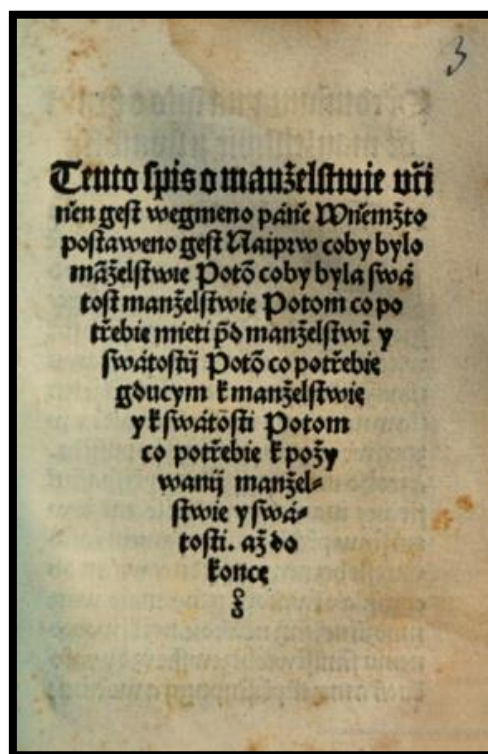 3
Tento spis o manželstwie vči
něn gest wegmeno páně Wněmžto
postaweno gest Naiprw coby bylo
mãželstwie Potõ coby byla swá
tost manželstwie Potom co po
třebie mieti p̃d manželstwĩ y
swátostij Potõ co potřebie
gducym k manželstwie
y k swátosti Potom
co potřebie k požy
wanij manžel⸗
stwie y swá⸗
tosti. až do
konce